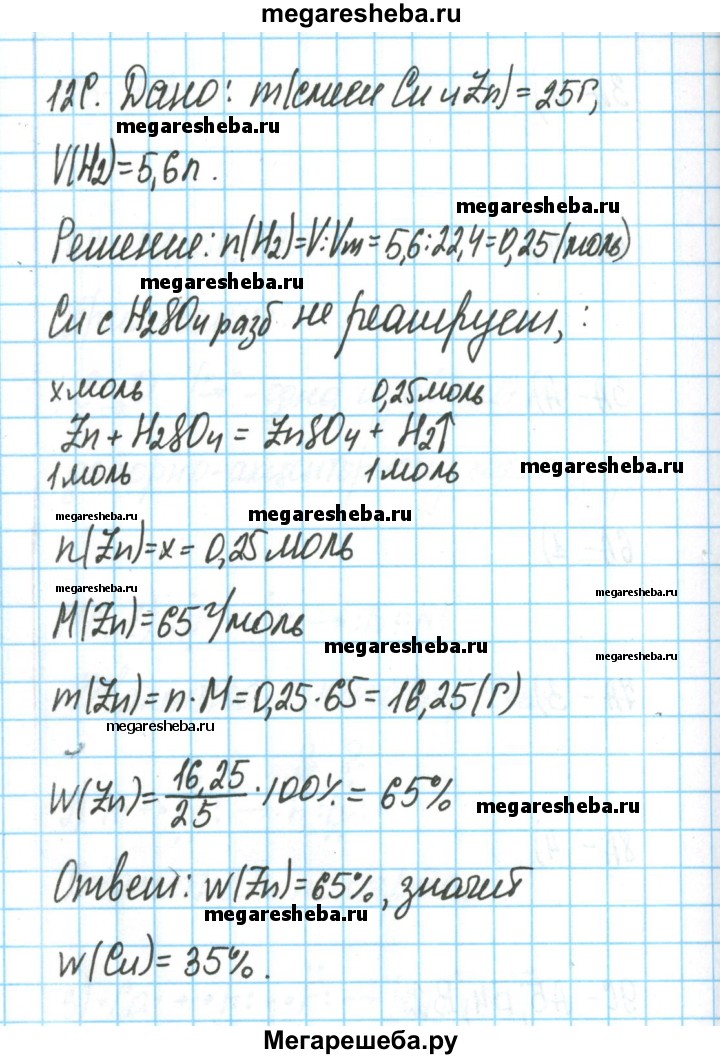 megaresheba.ru
12С. Дано: m(смеси Cu и Zn) = 25г,
megaresheba.ru
V(H2)=5,6л.
megaresheba.ru
Решение: n(H2)=V:Vm=5,6:22,4=0,25(моль)
megaresheba.ru
Cu с H2SO4 разб не реагирует, :
x моль 0,25 моль
Zn + H2SO4 = ZnSO4 + H2↑
1 моль 1 моль
megaresheba.ru
megaresheba.ru megaresheba.ru
n(Zn)=x= 0,25 моль
megaresheba.ru megaresheba.ru
M(Zn)=65 г/моль
megaresheba.ru
megaresheba.ru
m(Zn)=n·M=0,25·65=16,25(г)
megaresheba.ru
W(Zn)=16,25/25·100%=65%
megaresheba.ru
Ответ: w(Zn)=65%, значит
megaresheba.ru
w(Cu)=35%.
Мегарешеба.ру